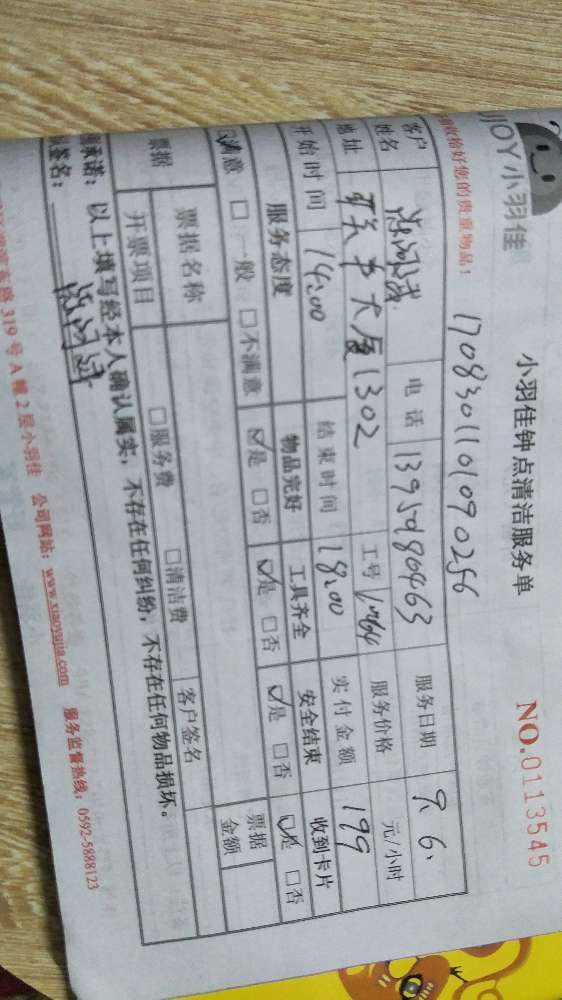 UJOY 小羽佳
小羽佳钟点清洁服务单
NO.0113545
收拾好您的贵重物品！
1708301101090256
客户姓名
电话
服务日期 9.6.
地址 大厦1302
工号
服务价格 元/小时
开始时间 14:00
结束时间 18:00
实付金额 199
服务态度 物品完好 工具齐全 安全结束 收到卡片
☑满意 □一般 □不满意 ☑是 □否 ☑是 □否 ☑是 □否 ☑是 □否
票据 票据名称 票据金额
开票项目 □服务费 □清洁费 客户签名
承诺：以上填写经本人确认属实，不存在任何纠纷，不存在任何物品损坏。
签名：
319号A幢2层小羽佳 公司网站：www.xiaoyujia.com 服务监督热线：0592-5888123